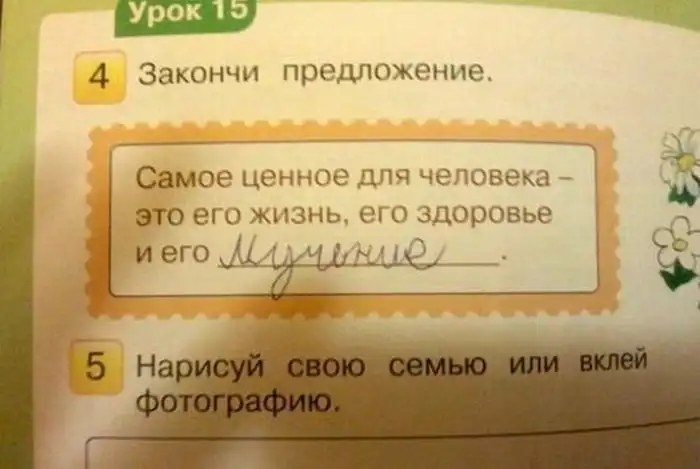 Урок 15
4 Закончи предложение.
Самое ценное для человека –
это его жизнь, его здоровье
и его мучение.
5 Нарисуй свою семью или вклей
фотографию.